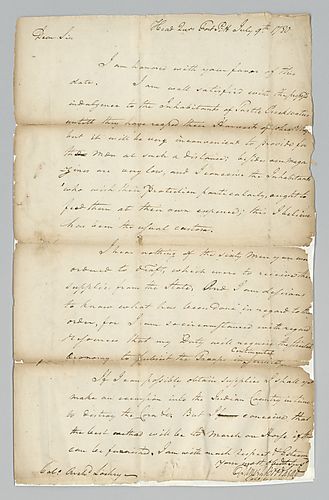 Head Qrs Fort Pitt July 9th 1780
Dear Sir
I am honored with your favor of this
date. I am well satisfied with the
indulgence to the Inhabitants of Turtle Creek
untill they have reaped their Harvest
but it will be very inconvenient to provide for
the Men at such a distance; besides our maga
zines are very low, and I conceive the Inhabitants
who wish their Protection particularly, ought to
feed them at their own expence; this I believe
has been the usual custom.
I hear nothing of the sixty Men you were
ordered to draft, which were to receive their
supplies from the State. And I am desirous
to know what has been done in regard to the
order, for I am so circumstanced with regard
to resources that my Duty will require the
Continental
economy to subsist the Troops
If I can possibly obtain supplies I shall yet
make an excursion into the Indian Country in time
to destroy the Corn &c. But I conceive that
the best method will be to march on Horse if they
can be furnished. I am with much respect & Esteem
Your most Obedt Servt
Colo. Archd Lochry